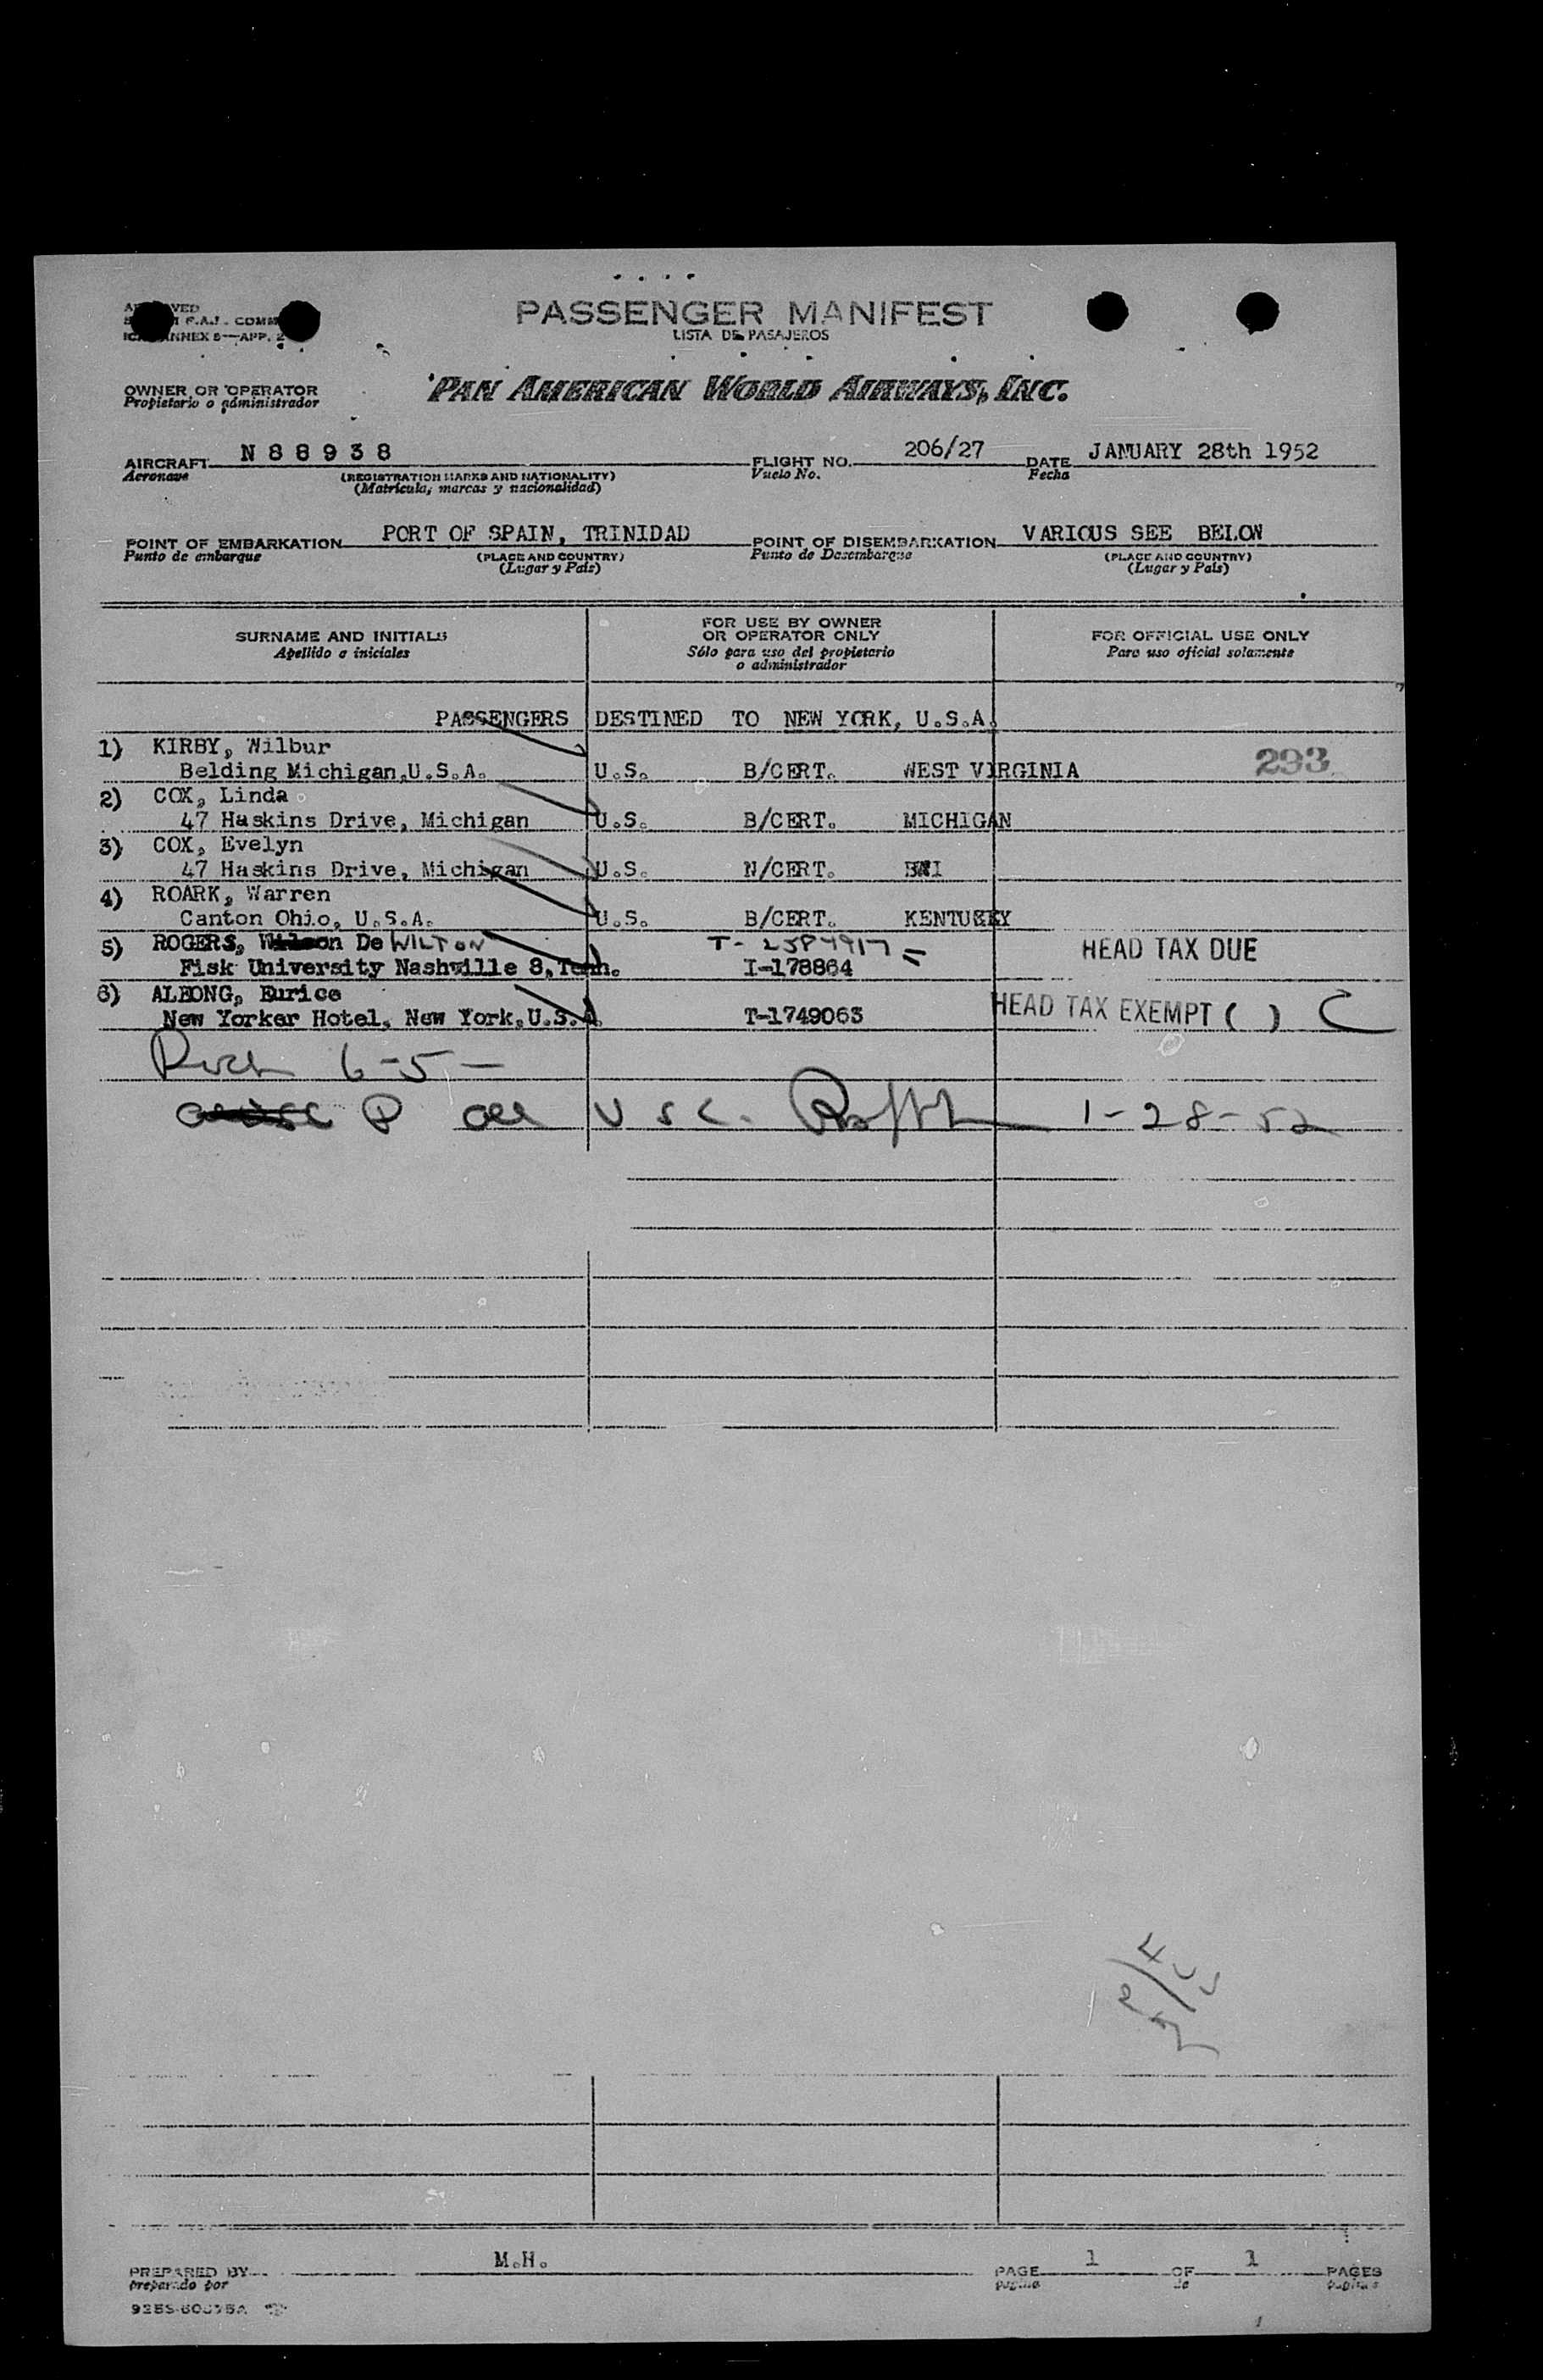 PASSENGER MANIFEST
LISTA DE PASAJEROS
ANNEX 8—APP. 2
OWNER OR OPERATOR
Propietario o administrador
PAN AMERICAN WORLD AIRWAYS, INC.
AIRCRAFT N 8 8 9 3 8 FLIGHT NO. 206/27 DATE JANUARY 28th 1952
Aeronave (REGISTRATION MARKS AND NATIONALITY) Vuelo No. Fecha
(Matrícula, marcas y nacionalidad)
POINT OF EMBARKATION PORT OF SPAIN, TRINIDAD POINT OF DISEMBARKATION VARIOUS SEE BELOW
Punto de embarque (PLACE AND COUNTRY) Punto de Desembarque (PLACE AND COUNTRY)
(Lugar y País) (Lugar y País)
SURNAME AND INITIALS
Apellido e iniciales
FOR USE BY OWNER
OR OPERATOR ONLY
Sólo para uso del propietario
o administrador
FOR OFFICIAL USE ONLY
Para uso oficial solamente
PASSENGERS DESTINED TO NEW YORK, U.S.A.
1) KIRBY, Wilbur
Belding Michigan,U.S.A. U.S. B/CERT. WEST VIRGINIA 293
2) COX, Linda
47 Haskins Drive, Michigan U.S. B/CERT. MICHIGAN
3) COX, Evelyn
47 Haskins Drive, Michigan U.S. N/CERT. BWI
4) ROARK, Warren
Canton Ohio, U.S.A. U.S. B/CERT. KENTUCKY
5) ROGERS, De WILTON T- HEAD TAX DUE
Fisk University Nashville 8, Tenn. I-178864
6) ALEONG, Eurice
New Yorker Hotel, New York,U.S.A. T-1749063 HEAD TAX EXEMPT ( ) C
6-5-
P all U S C. 1-28-52
PREPARED BY M.H. PAGE 1 OF 1 PAGES
preparado por pagina de paginas